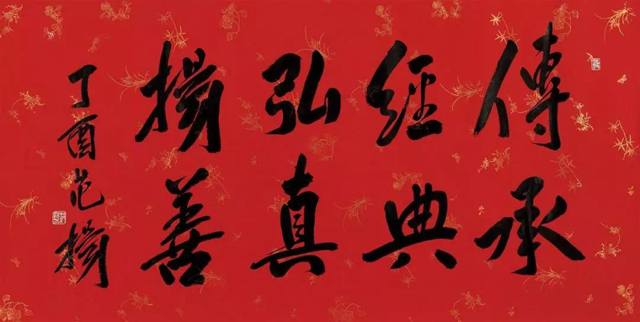 傳承
經典
弘真
揚善
丁酉范揚